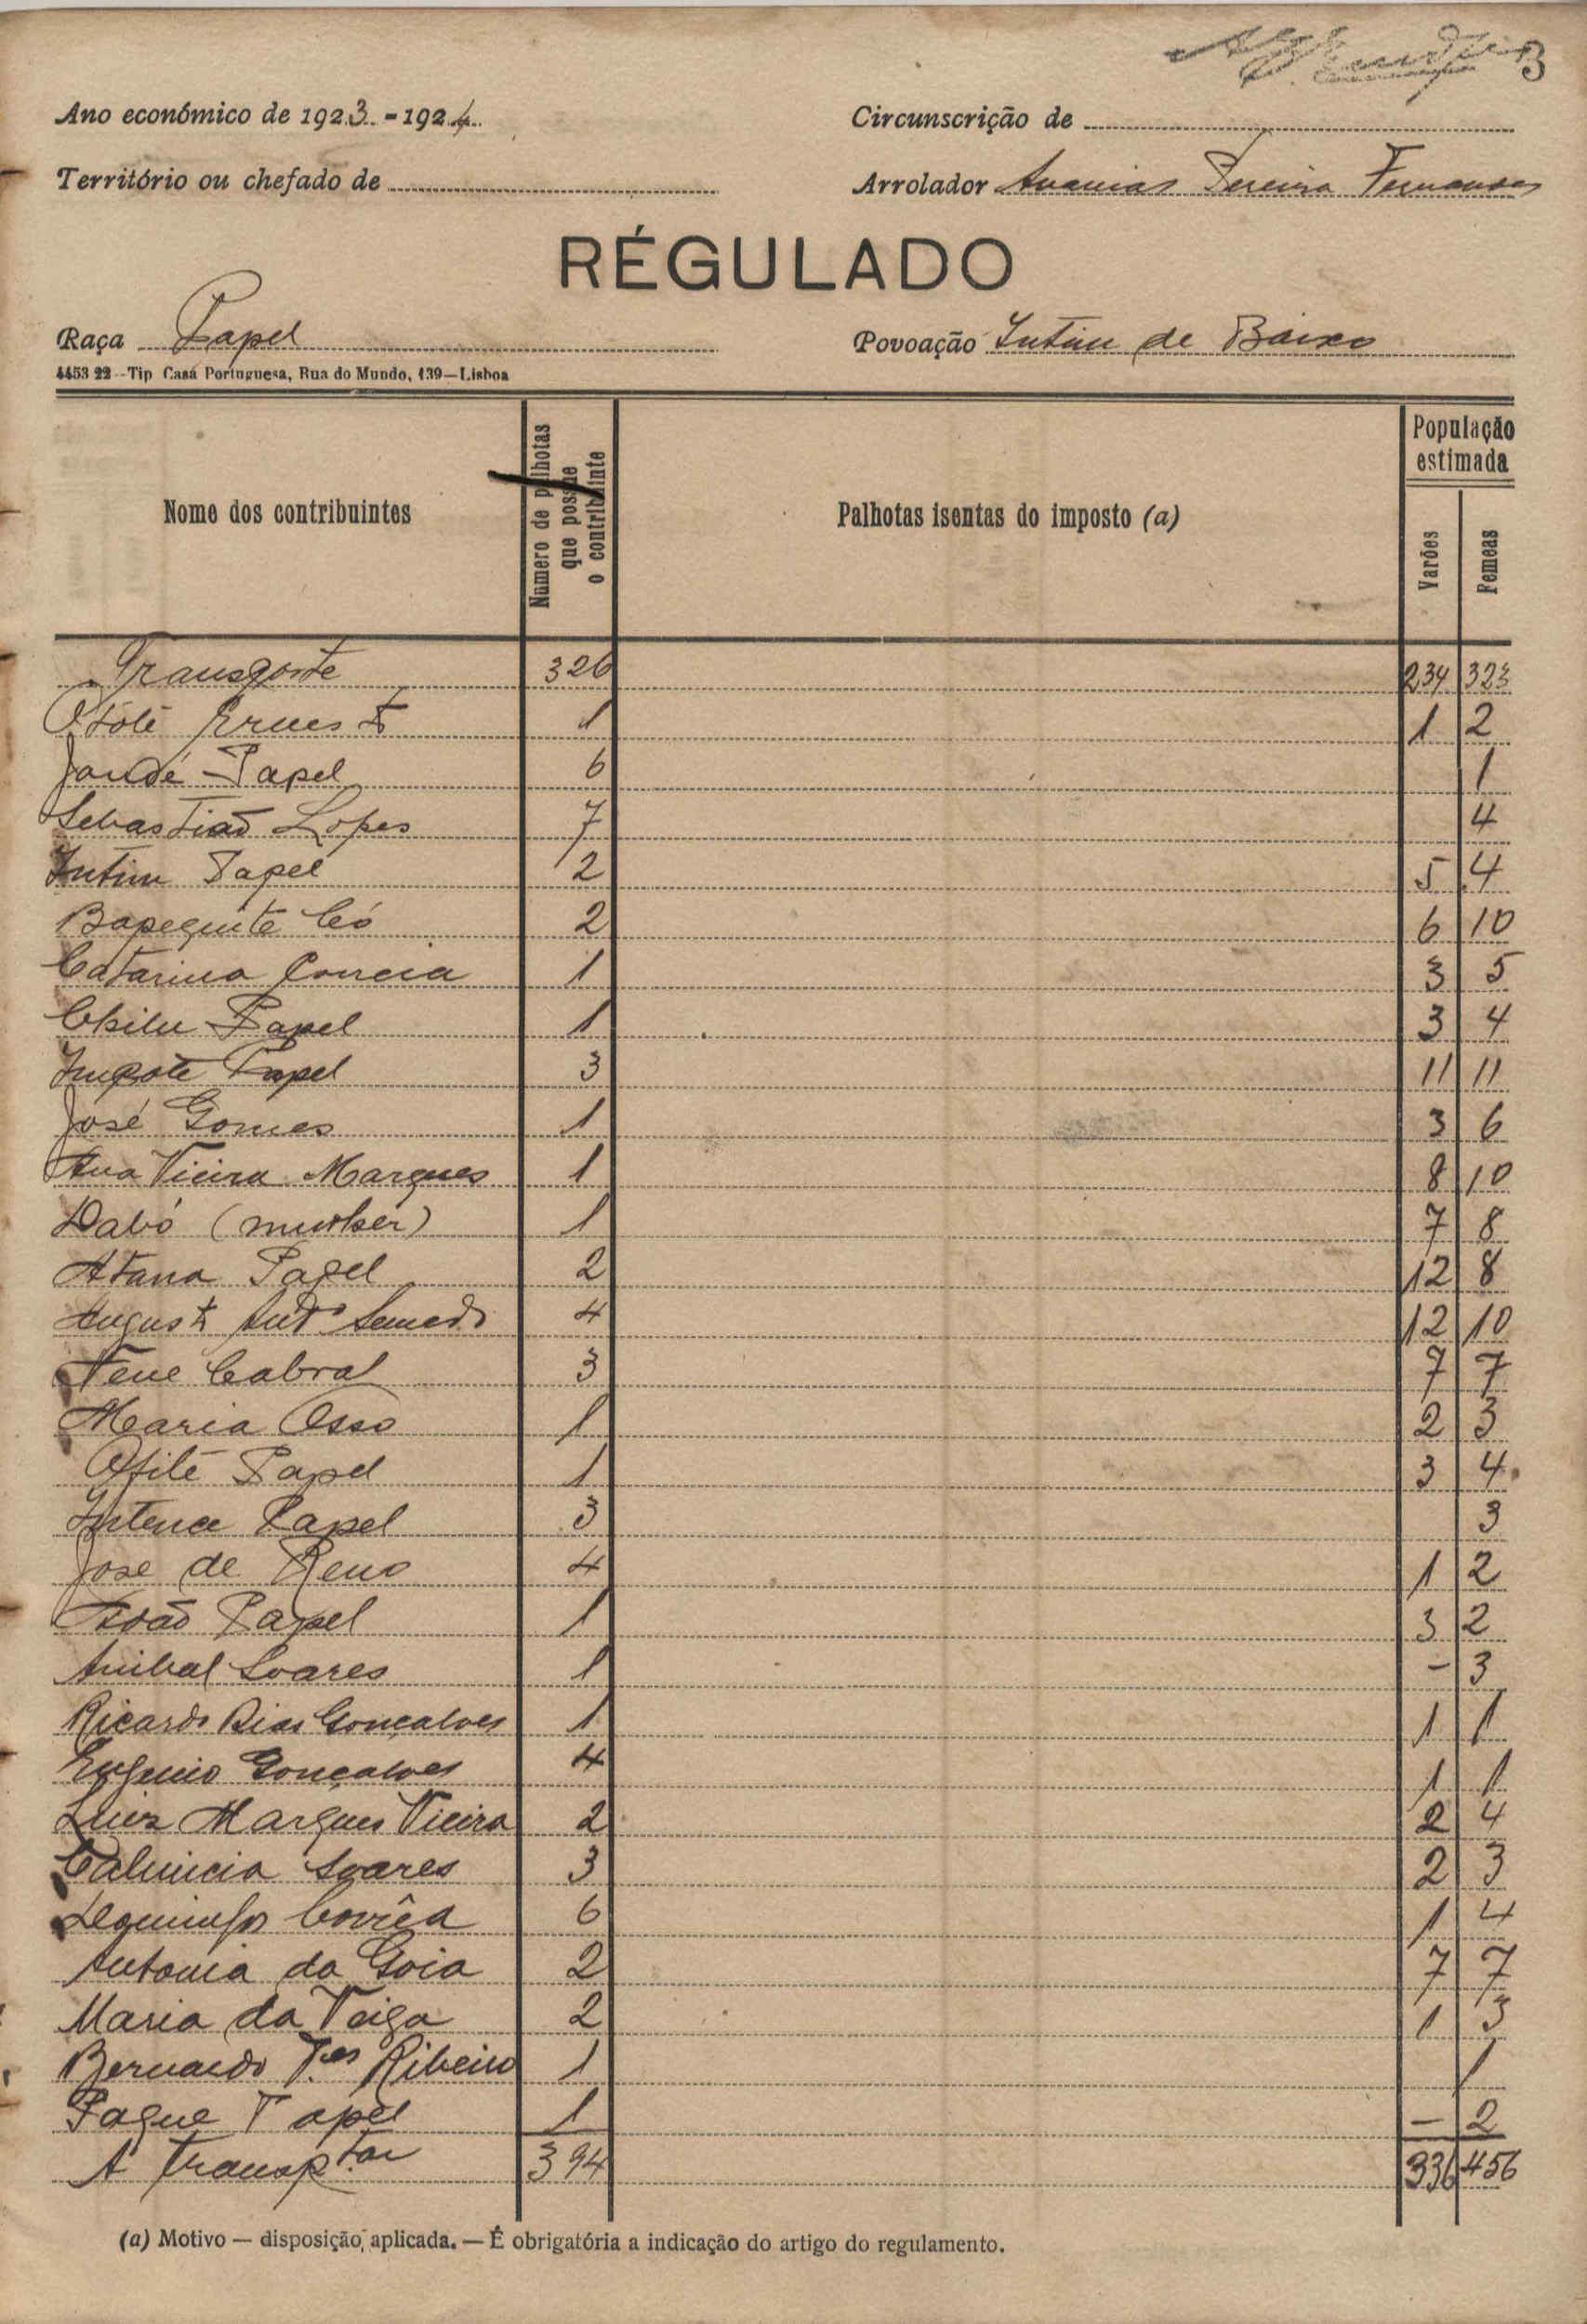 3
Ano económico de 1923-1924
Circunscrição de
Território ou chefado de
Arrolador Ananias Pereira Fernandes
RÉGULADO
Raça Papel
Povoação Intim de Baixo
4453 22--Tip Casa Portuguesa, Rua do Mundo, 139—Lisboa
Nome dos contribuintes
Número de palhotas que possue o contribuinte
Palhotas isentas do imposto (a)
População estimada
Varões
Femeas
Transporte 326 234 323
1 1 2
Jandé Papel 6 1
Sebastião Lopes 7 4
Intim Papel 2 5 4
Bapequite Có 2 6 10
Catarina Correia 1 3 5
Chilu Papel 1 3 4
Papel 3 11 11
José Gomes 1 3 6
Ana Vieira Marques 1 8 10
Dabó (mulher) 1 7 8
Atana Papel 2 12 8
Augusto Antº Semedo 4 12 10
Nene Cabral 3 7 7
Maria Osso 1 2 3
Papel 1 3 4
Papel 3 3
José de Reno 4 1 2
João Papel 1 3 2
Anibal Soares 1 - 3
Ricardo Dias Gonçalves 1 1 1
Eugenio Gonçalves 4 1 1
Luiz Marques Vieira 2 2 4
Soares 3 2 3
Domingos Corrêa 6 1 4
Antonia da Goia 2 7 7
Maria da Veiga 2 1 3
Bernardo T.es Ribeiro 1 1
Pague Papel 1 - 2
A transp.tar 394 336 456
(a) Motivo — disposição aplicada. — É obrigatória a indicação do artigo do regulamento.